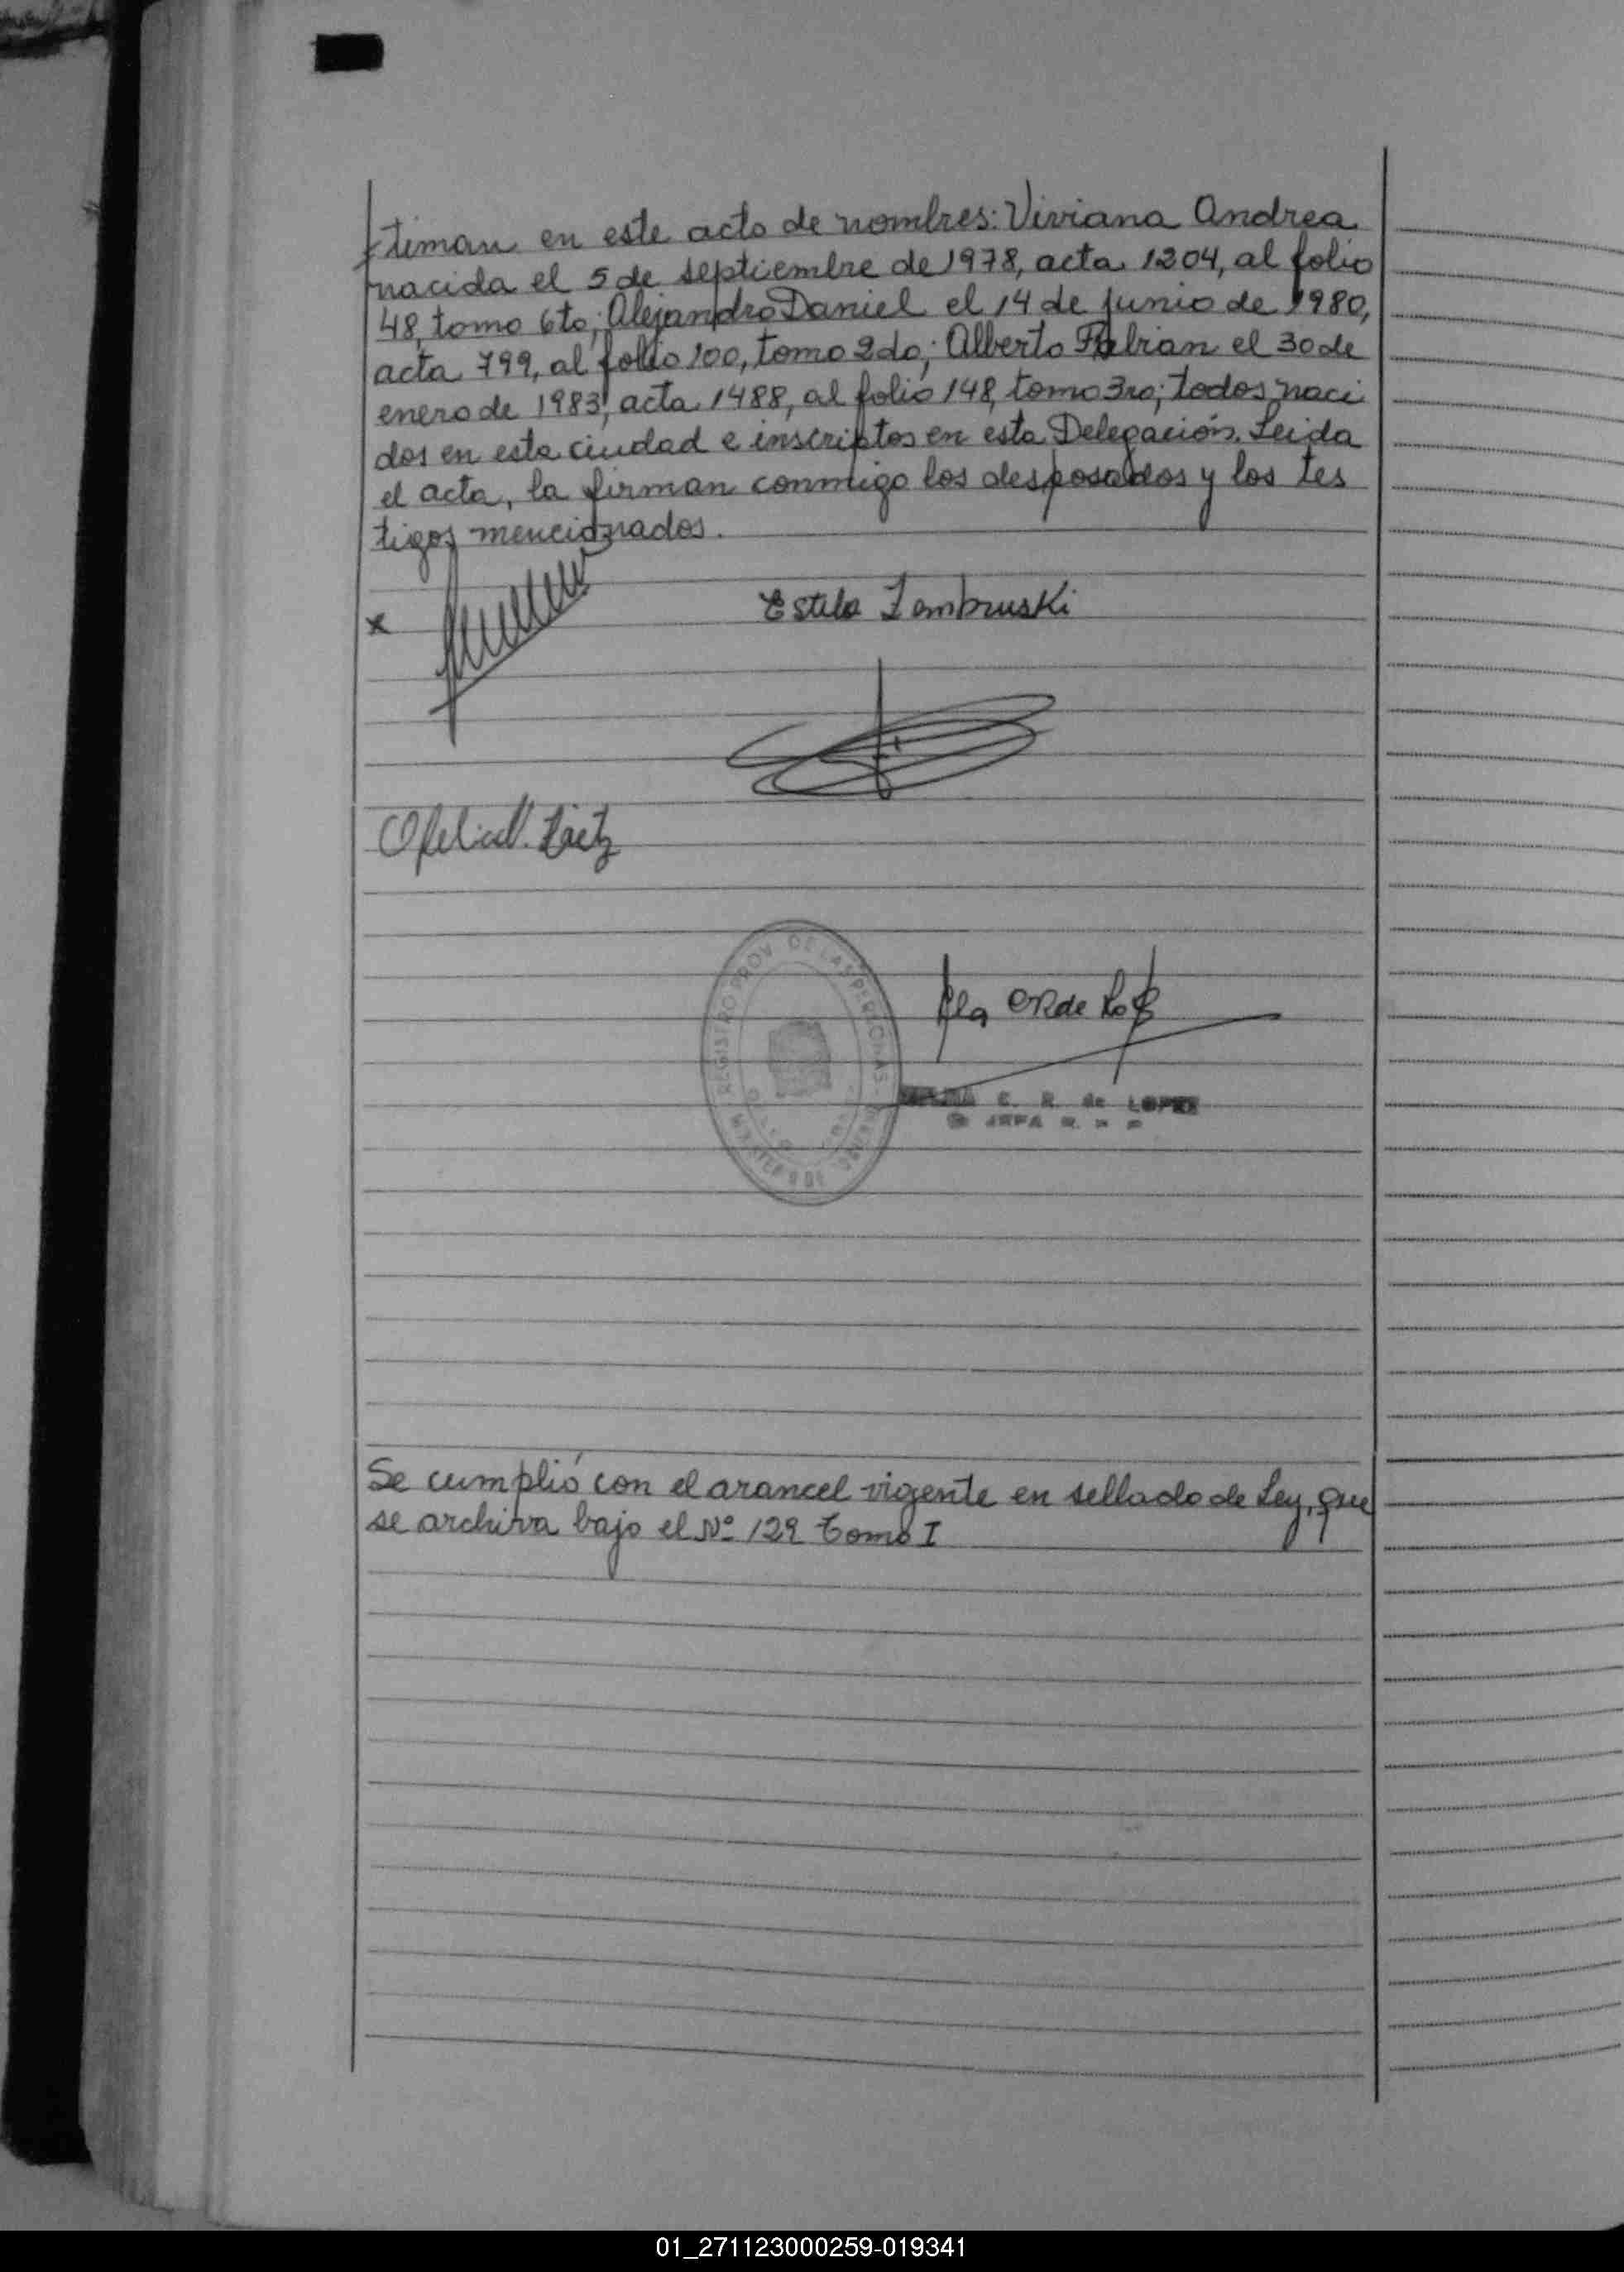 timan en este acto de nombres: Viviana Andrea
nacida el 5 de septiembre de 1978, acta 1204, al folio
48, tomo 6to; Alejandro Daniel el 14 de junio de 1980,
acta 799, al folio 100, tomo 2do; Alberto Fabian el 30 de
enero de 1983, acta 1488, al folio 148, tomo 3ro; todos naci
dos en esta ciudad e inscriptos en esta Delegación. Leida
el acta, la firman conmigo los desposados y los tes
tigos mencionados.
x
Estela Zembruski
Ofelia
REGISTRO PROV. DE LAS PERSONAS
C. R. de LOPEZ
JEFA R. P. P.
Se cumplió con el arancel vigente en sellado de Ley, que
se archiva bajo el Nº 129 Tomo I
01_271123000259-019341